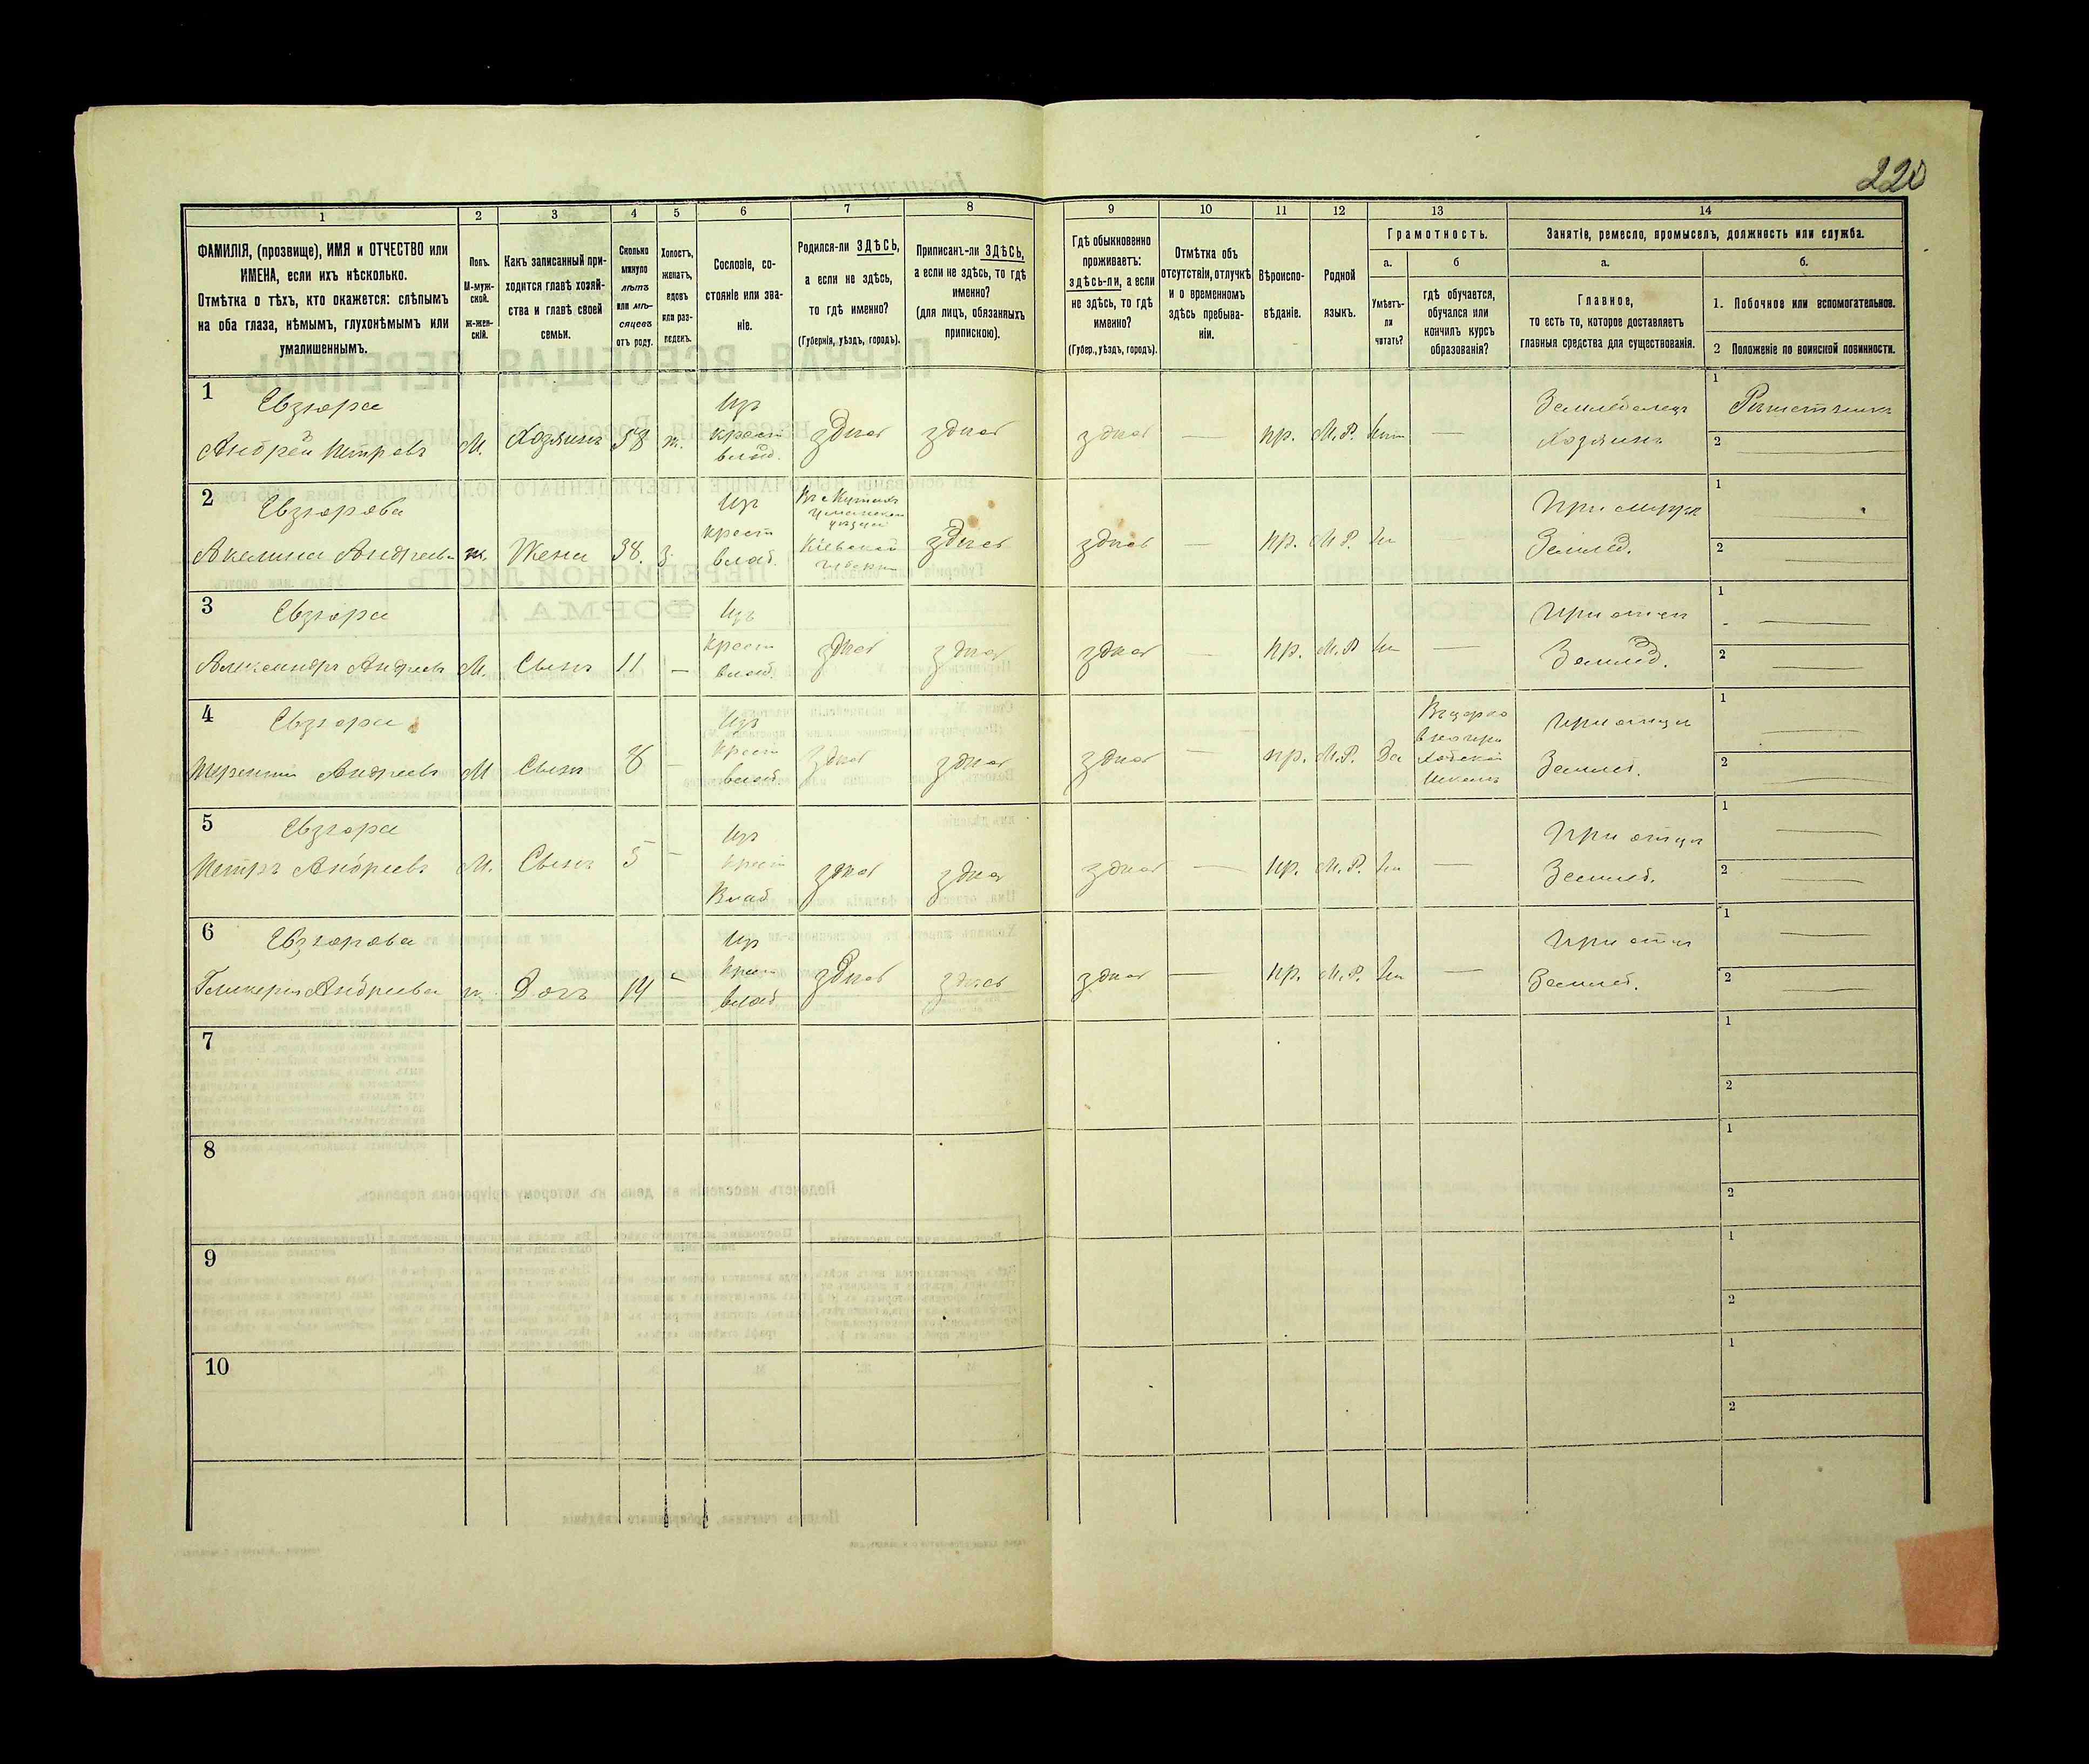 220
1
2
3
4
5
6
7
8
9
10
11
12
13
14
ФАМИЛІЯ, (прозвище), ИМЯ и ОТЧЕСТВО или
ИМЕНА, если ихъ нѣсколько.
Отмѣтка о тѣхъ, кто окажется: слѣпымъ
на оба глаза, нѣмымъ, глухонѣмымъ или
умалишеннымъ.
Полъ.
М-муж-
ской.
ж-жен-
скій.
Какъ записанный при-
ходится главѣ хозяй-
ства и главѣ своей
семьи.
Сколько
минуло
лѣтъ
или мѣ-
сяцевъ
отъ роду.
Холостъ,
женатъ,
вдовъ
или раз-
веденъ.
Сословіе, со-
стояніе или зва-
ніе.
Родился-ли ЗДѢСЬ,
а если не здѣсь,
то гдѣ именно?
(Губернія, уѣздъ, городъ).
Приписанъ-ли ЗДѢСЬ,
а если не здѣсь, то гдѣ
именно?
(для лицъ, обязанныхъ
припискою).
Гдѣ обыкновенно
проживаетъ:
здѣсь-ли, а если
не здѣсь, то гдѣ
именно?
(Губер., уѣздъ, городъ).
Отмѣтка объ
отсутствіи, отлучкѣ
и о временномъ
здѣсь пребыва-
ніи.
Вѣроиспо-
вѣданіе.
Родной
языкъ.
Грамотность.
а.
б
Умѣетъ-
ли
читать?
гдѣ обучается,
обучался или
кончилъ курсъ
образованія?
Занятіе, ремесло, промыселъ, должность или служба.
а.
б.
Главное,
то есть то, которое доставляетъ
главныя средства для существованія.
1. Побочное или вспомогательное.
2 Положеніе по воинской повинности.
1
Евзюра
Андрей Петровъ М. Хозяинъ 58 ж. Изъ крест. влад. здѣсь здѣсь здѣсь — пр. М.Р. — Земледелецъ Хозяинъ
1
2
2
Евзюрова
Акелина Андреева ж. Жена 38. з. Изъ крест влад. Кіевской здѣсь здѣсь — пр. М.Р. не — При мужѣ Землед.
1
2
3
Евзюра
Александръ Андреевъ М. Сынъ 11 — Изъ крест влад. здѣсь здѣсь здѣсь — пр. М.Р. не — При отцѣ Землед.
1
2
4
Евзюра
Андреевъ М Сынъ 8 — Изъ крест влад здѣсь здѣсь здѣсь — пр. М.Р. Да При отцѣ Землед.
1
2
5
Евзюра
Петръ Андреевъ М. Сынъ 5 — Изъ крест Влад здѣсь здѣсь здѣсь — пр. М.Р. не — При отцѣ Землед.
1
2
6
Евзюрова
Гликерія Андреева ж. Дочь 14 — Изъ крест влад здѣсь здѣсь здѣсь — пр. М.Р. не — При отцѣ Землед.
1
2
7
1
2
8
1
2
9
1
2
10
1
2